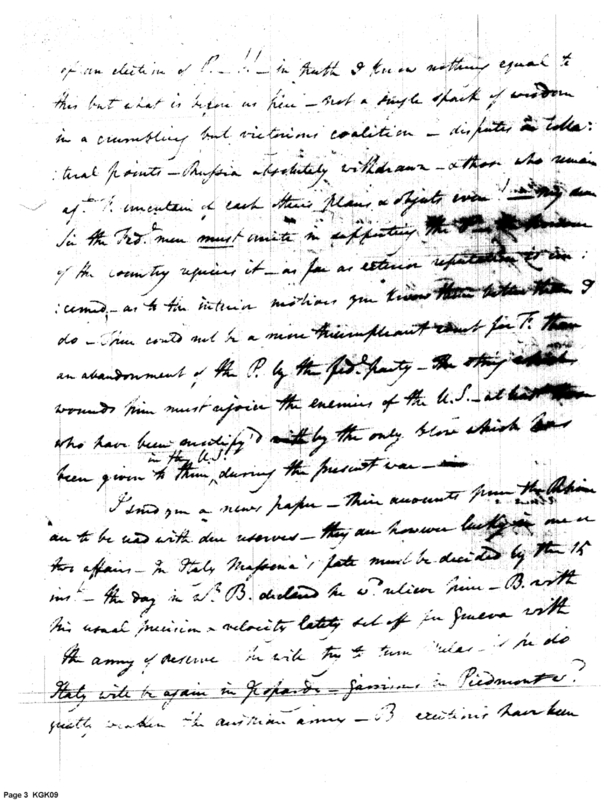 of an election of P. – !! – in truth I know nothing equal to
this but what is before us here – not a single spark of wisdom
in a crumbling but victorious coalition – disputes on colla:
:teral points – Russia absolutely withdrawn – & those who remain
agt. F. uncertain of each others plans & objects even! – my dear
Sir the Fed.l men must unite in supporting the P –
of the country requires it – as far as exterior reputation is con:
:cerned – as to the interior motives you know them better than I
do – There could not be a more triumphant event for F. than
an abandonment of the P. by the fed.l party – the sting which
wounds him must rejoice the enemies of the U.S. – at least those
who have been mortify'd by the only blow which has
in the U.S.
been given to them, during the present war –
I send you a news paper – their accounts from the Rhine
are to be read with due reserves – they are however lucky in one or
two affairs – In Italy Massena's fate must be decided by the 15
inst. – the day in wh. B. declared he wd. relieve him – B. with
his usual precision & velocity lately set off for Geneva with
the army of reserve he will try to turn Melas – if he do
Italy will be again in Jeopardy – Garrisons in Piedmont wd.
greatly weaken the austrian army – B exertions have been
Page 3 KGK09